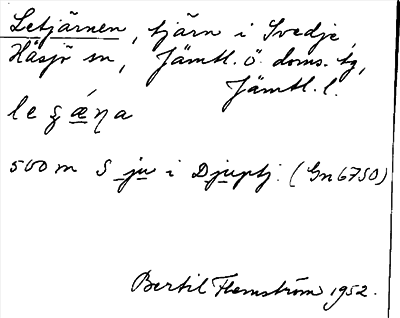 Letjärnen, tjärn i Svedje,
Häsjö sn, Jämtl. ö. doms. tg,
Jämtl. l.
le ʂǽŋa
500 m S ju i Djuptj. (Gn 6750)
Bertil Flemström 1952.